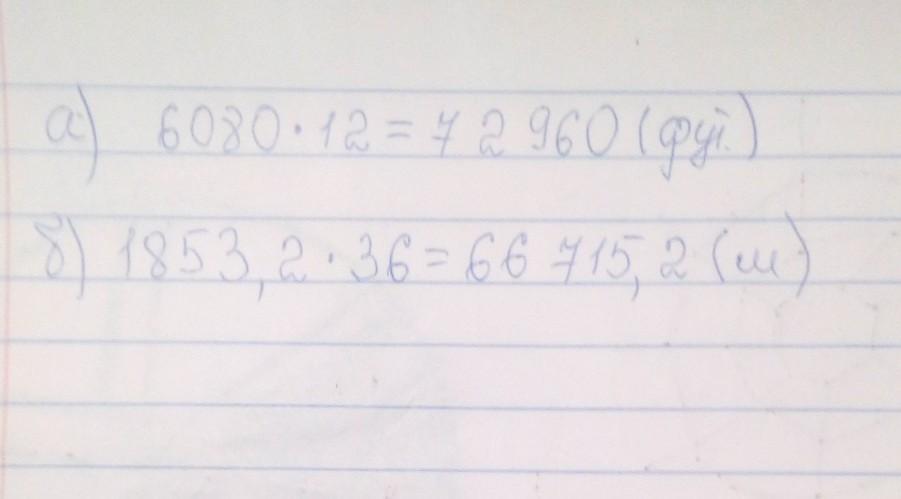 а) 6080 · 12 = 72 960 (фут.)
б) 1853,2 · 36 = 66 715,2 (м)